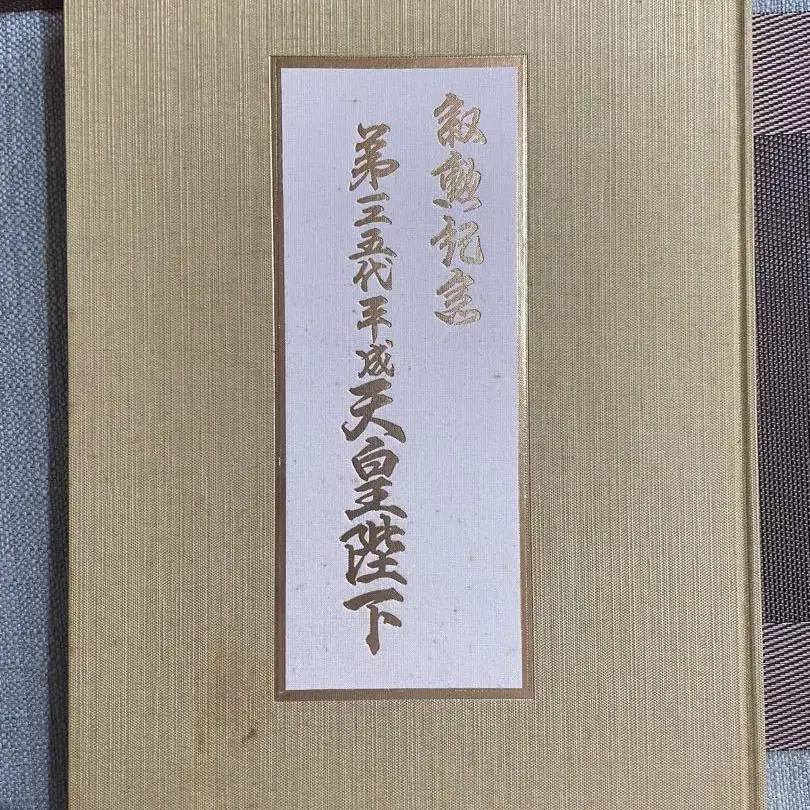 叙勲記念
第一二五代平成天皇陛下